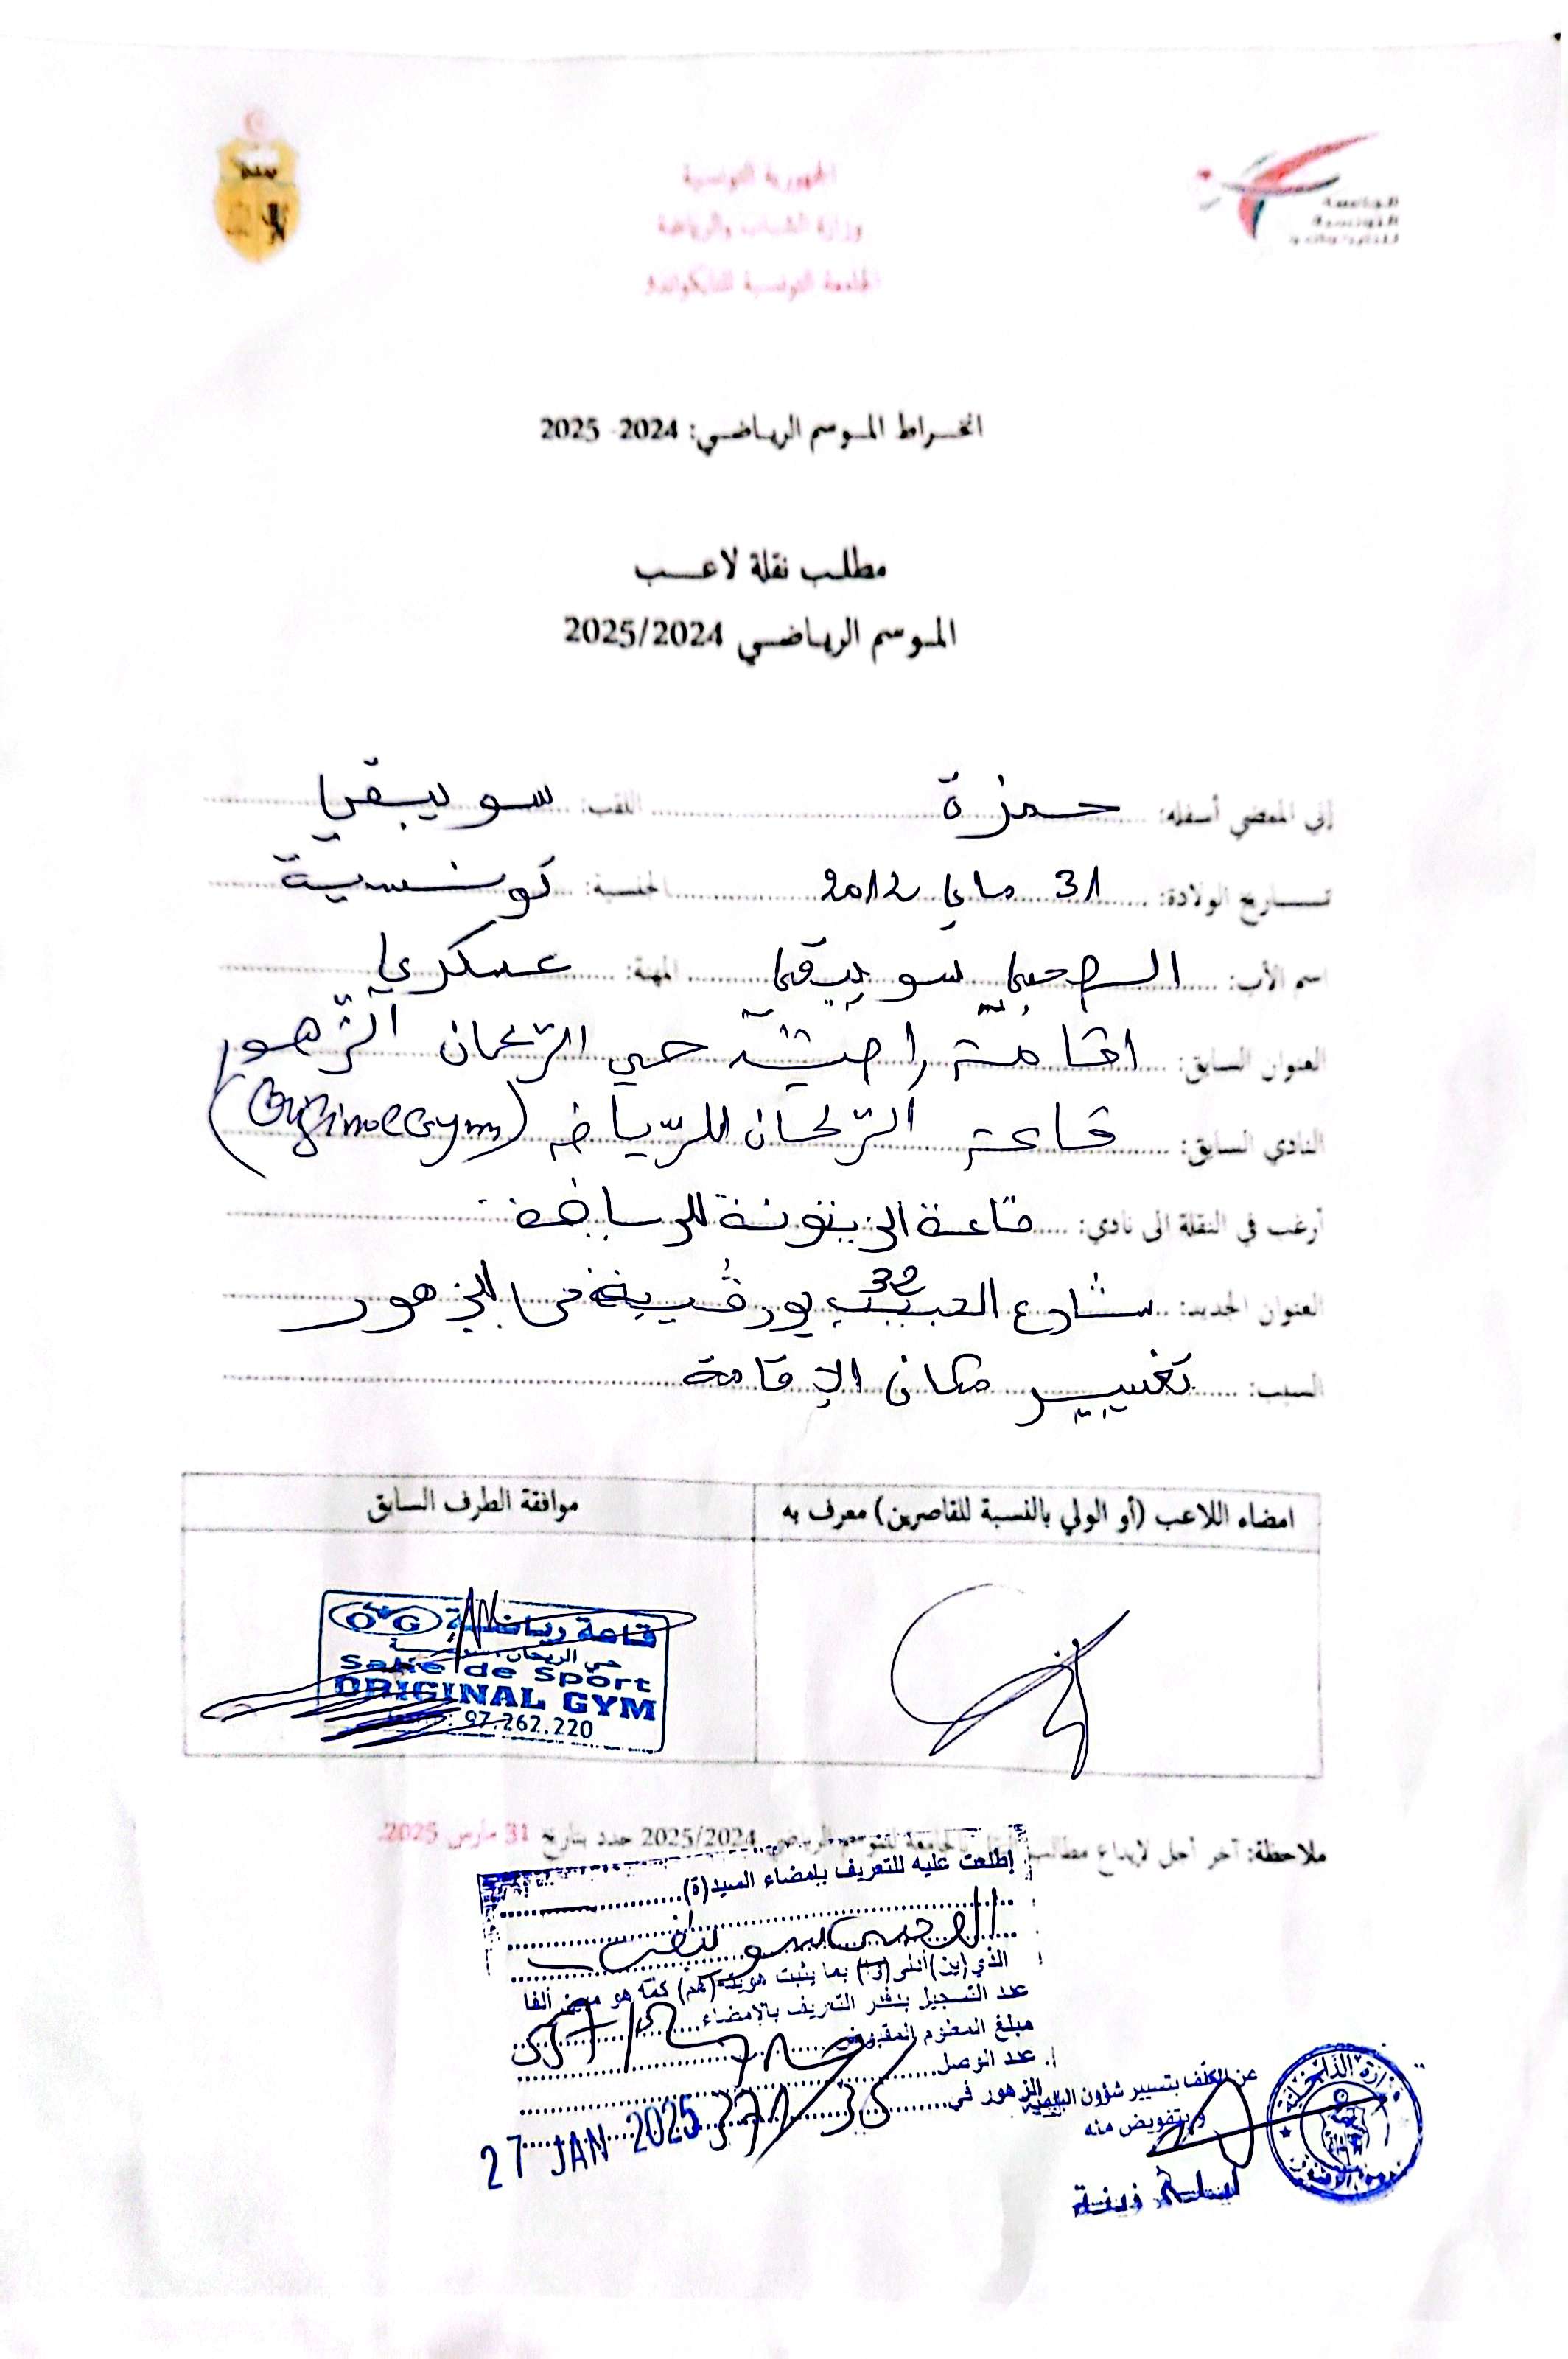 الجمهورية التونسية
وزارة الشباب والرياضة
الجامعة التونسية للتايكواندو
الجامعة
التونسية
للتايكواندو
انخراط الموسم الرياضي: 2024- 2025
مطلب نقلة لاعب
الموسم الرياضي 2025/2024
إني الممضي أسفله: حمزة اللقب: سويبقي
تاريخ الولادة: 31 ماي 2012 الجنسية: تونسية
اسم الأب: الصحبي سويبقي المهنة: عسكري
العنوان السابق: اقامة حي الريحان الزهور
النادي السابق: قاعة الريحان للرياضة (Original Gym)
أرغب في النقلة الى نادي: قاعة الزيتونة للرياضة
العنوان الجديد: شارع الحبيب بورقيبة 32 الزهور
السبب: تغيير مكان الإقامة
امضاء اللاعب (أو الولي بالنسبة للقاصرين) معرف به
موافقة الطرف السابق
قاعة رياضية OG
حي الريحان
Salle de Sport
ORIGINAL GYM
97.262.220
ملاحظة: آخر أجل لإيداع مطالب بالجامعة للموسم الرياضي 2025/2024 حدد بتاريخ 31 مارس 2025.
إطلعت عليه للتعريف بإمضاء السيد(ة)
الذي (ين) أدلى (وا) بما يثبت هويته (هم) كما هو مبين آنفا
عدد التسجيل بدفتر التعريف بالإمضاء
مبلغ المعلوم المقبوض
عدد الوصل
الزهور في 27 JAN 2025
عن المكلف بتسيير شؤون البلدية
وبتفويض منه
وزارة الداخلية